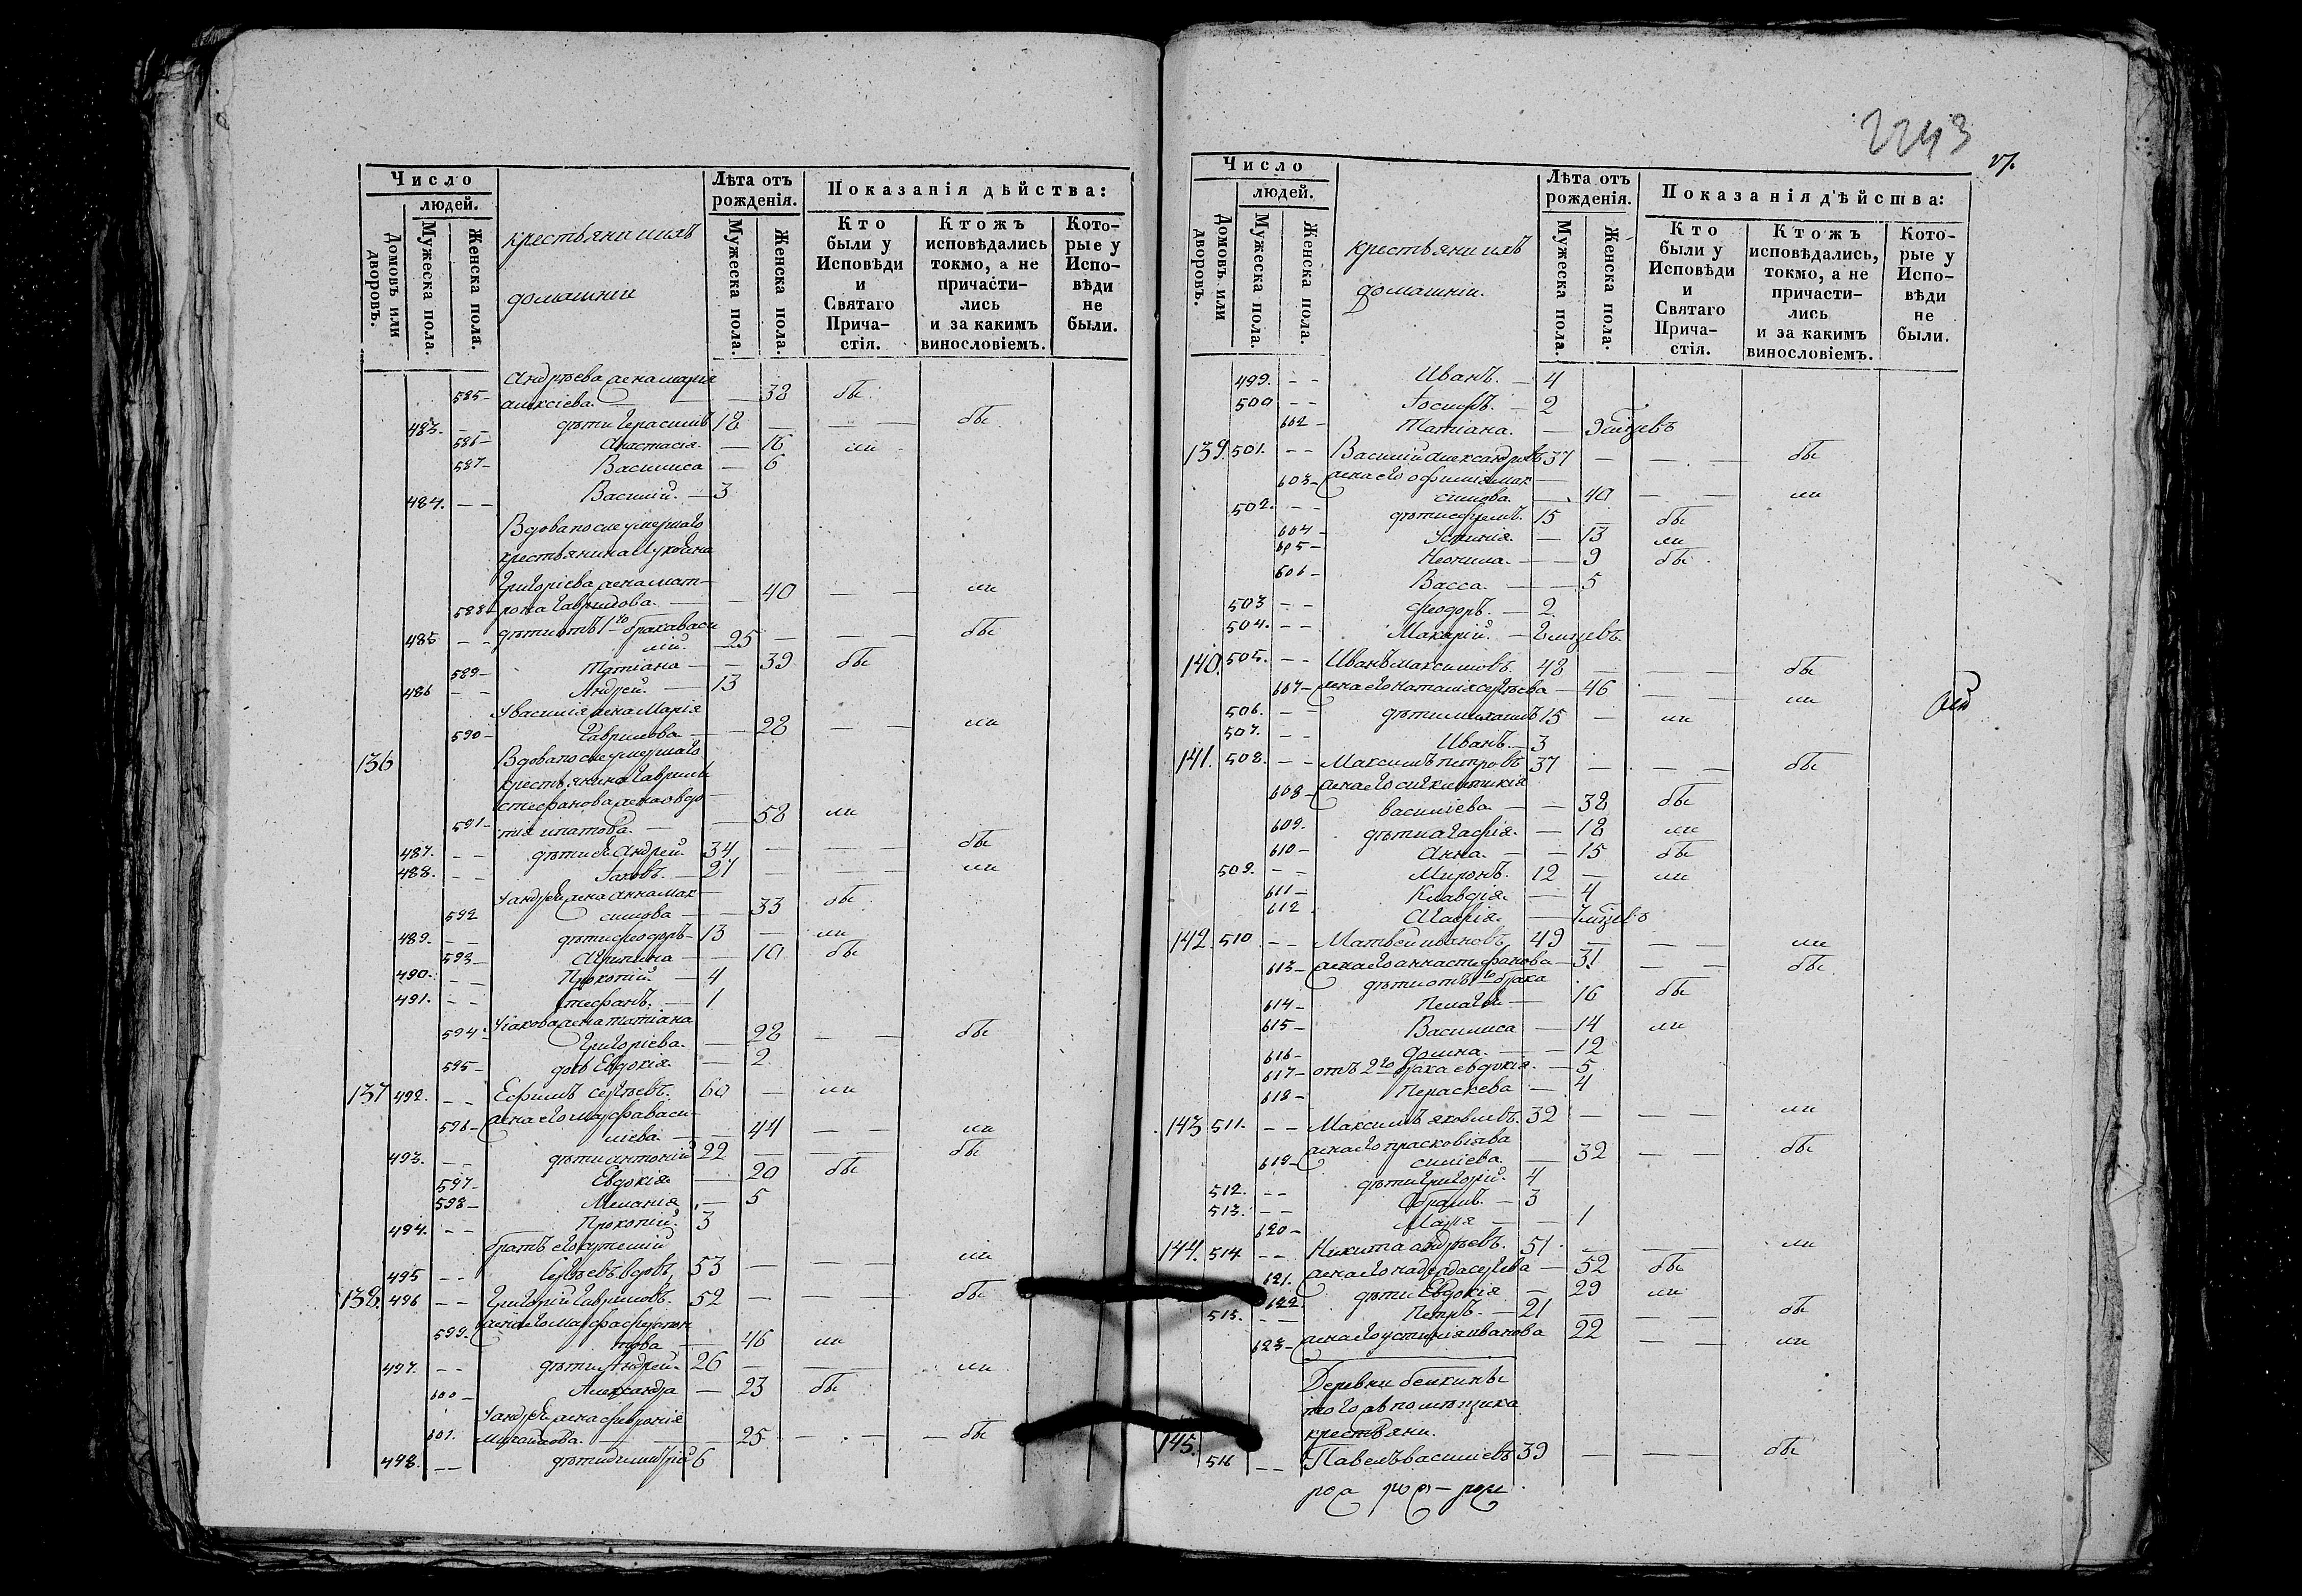 2243
17.
Число
людей.
Домовъ или дворовъ.
Мужеска пола.
Женска пола.
крестьяни ихъ
домашніи
Лѣта отъ рожденія.
Мужеска пола.
Женска пола.
Показанія дѣйства:
Кто были у Исповѣди и Святаго Прича-стія.
Ктожъ исповѣдались токмо, а не причасти-лись и за какимъ винословіемъ.
Кото-рые у Испо-вѣди не были.
Андрѣева жена марія
585 – алексіева. — — 38 бы
483. – – дѣти Герасимъ 18 — — — бы
586 – Анастасія. — 16 ли
587 – Василиса — 6
484. – – Василій. — 3
Вдова после умершаго
крестьянина Лукояна
Григоріева жена мат-
588 – рона Гаврилова. — — 40 — — ли
485 – – дѣти отъ 1го брака васи
лій. 25 — — — бы
589 – Татіана — — 39 бы
486 – – Андрей. — 13
У василія жена Марія
590 – Гаврилова — — 28 — — ли
136 Вдова после умершаго
крестьянина Гаврилы
стефанова жена овдо
591 – тія ипатова. — — 58 ли
487. – – дѣти ея Андрей. 34 — — — бы
488. – – Іаковъ. — 27 — — — ли
У андрея жена анна мак
592 симова — — 33 бы
489. – – дѣти феодоръ — 13 — ли
593 – Агрипина — — 10 бы
490. – – Прокопій. — 4
491. – – стефанъ. — 1
У іакова жена татіана
594 – Григоріева. — 28 — — бы
595 – дочь Евдокія. — 2.
137 492. – – Ефимъ сергѣевъ. 60 — ли
жена его марфа васи
596 – ліева. — — 44 — — ли
493. – – дѣти антоній 22 — — — бы
597 – Евдокія. — 20 бы
598 – Меланія — 5
494. – – Прокопій. 3
братъ его артемій
495 – – Сергѣевъ вдовъ, 53 — — — ли
138. 496 – – Григорій Гавриловъ. 52 — — — бы
жена его марфа ферапон
599. това — 46 ли
497. – – дѣти Андрей. 26 — — — ли
600 – Александра — 23 бы
У андрея жена февронія
601. михайлова. — — 25 — — — бы
498. – – дѣти димитрій 6
Число
людей.
Домовъ или дворовъ.
Мужеска пола.
Женска пола.
крестьяни ихъ
домашніи.
Лѣта отъ рожденія.
Мужеска пола.
Женска пола.
Показанія дѣйства:
Кто были у Исповѣди и Святаго Прича-стія.
Ктожъ исповѣдались, токмо, а не причасти-лись и за какимъ винословіемъ.
Кото-рые у Испо-вѣди не были.
499. – – Иванъ. — 4
500 – – Іосифъ. — 2
602 – Татіана. —
139. 501. – – Василій александровъ 37 — — — бы
603 – жена его офимія мак
симова. — 40 — — ли
502. – – дѣти ефимъ. 15 — бы
604 – Устинія. — 13 ли
605 – Неонила. — — 9 бы
606 – Васса. — — 5
503 – – феодоръ. — 2.
504. – – Макарій. —
140. 505. – – Иванъ максимовъ. 48 — — — бы
607 – жена его наталія сергѣева — 46 — — ли
506. – – дѣти михаилъ 15 — ли
507. – – Иванъ. — 3
141. 508. – – Максимъ петровъ 37 — — — бы
608 – жена его сигклитикія
василіева. — — 38 бы
609. дѣти агафія. — 18 ли
610 – Анна. — — 15 бы
509. – – Миронъ. 12 — ли
611 – Клавдія. — 4
612 Агафія. —
142. 510. – – Матвей ивановъ, 49 — — — ли
613 – жена его анна стефанова — 31. — — бы
дѣти отъ 1го брака
614 – Пелагея — 16 бы
615 – Василиса — 14 ли
616 – домна. — — 12
617 – отъ 2го брака евдокія. — 5
618 – Параскева — 4
143 511. – – Максимъ яковлевъ. 32 — — — ли
жена его прасковія ва
619 – силіева. — 32 — — бы
512. – – дѣти григорій. 4
513. – – Абрамъ. — 3
620 – Марія — — 1
144. 514. – – Никита андрѣевъ. 51 — — — ли
621. жена его надежда сергѣева — 52 бы
622. дѣти Евдокія — 29 ли
515. – – Петръ. — 21 — — — бы
623 – жена его устинія иванова 22 — — ли
Деревни белкины
того жъ помѣщика
крестьяни.
145. 516 – – Павелъ василіевъ 39 — — — бы